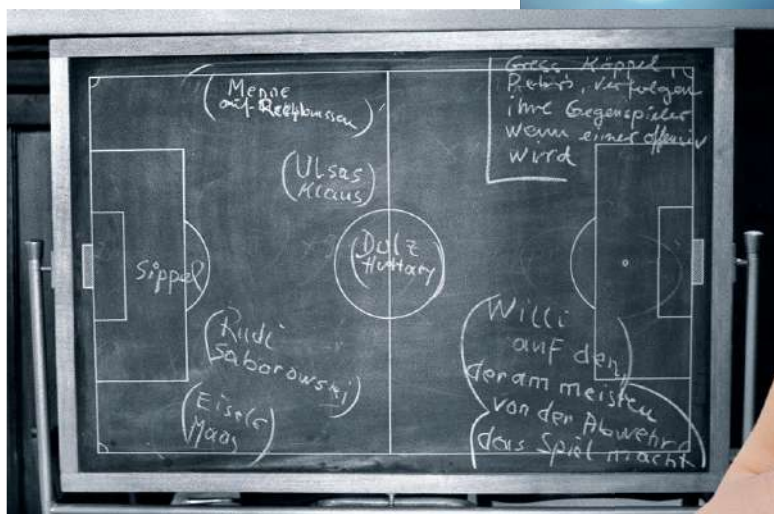 Menne
auf Rechtsaussen
Ulsas
Klaus
Sippel
Dulz
Huttary
Rudi
Saborowski
Eisele
Maas
Gress Köppel,
Reitgaßl, verfolgen
ihre Gegenspieler
wenn einer offensiv
wird
Willi
auf den,
der am meisten
von der Abwehr
das Spiel macht